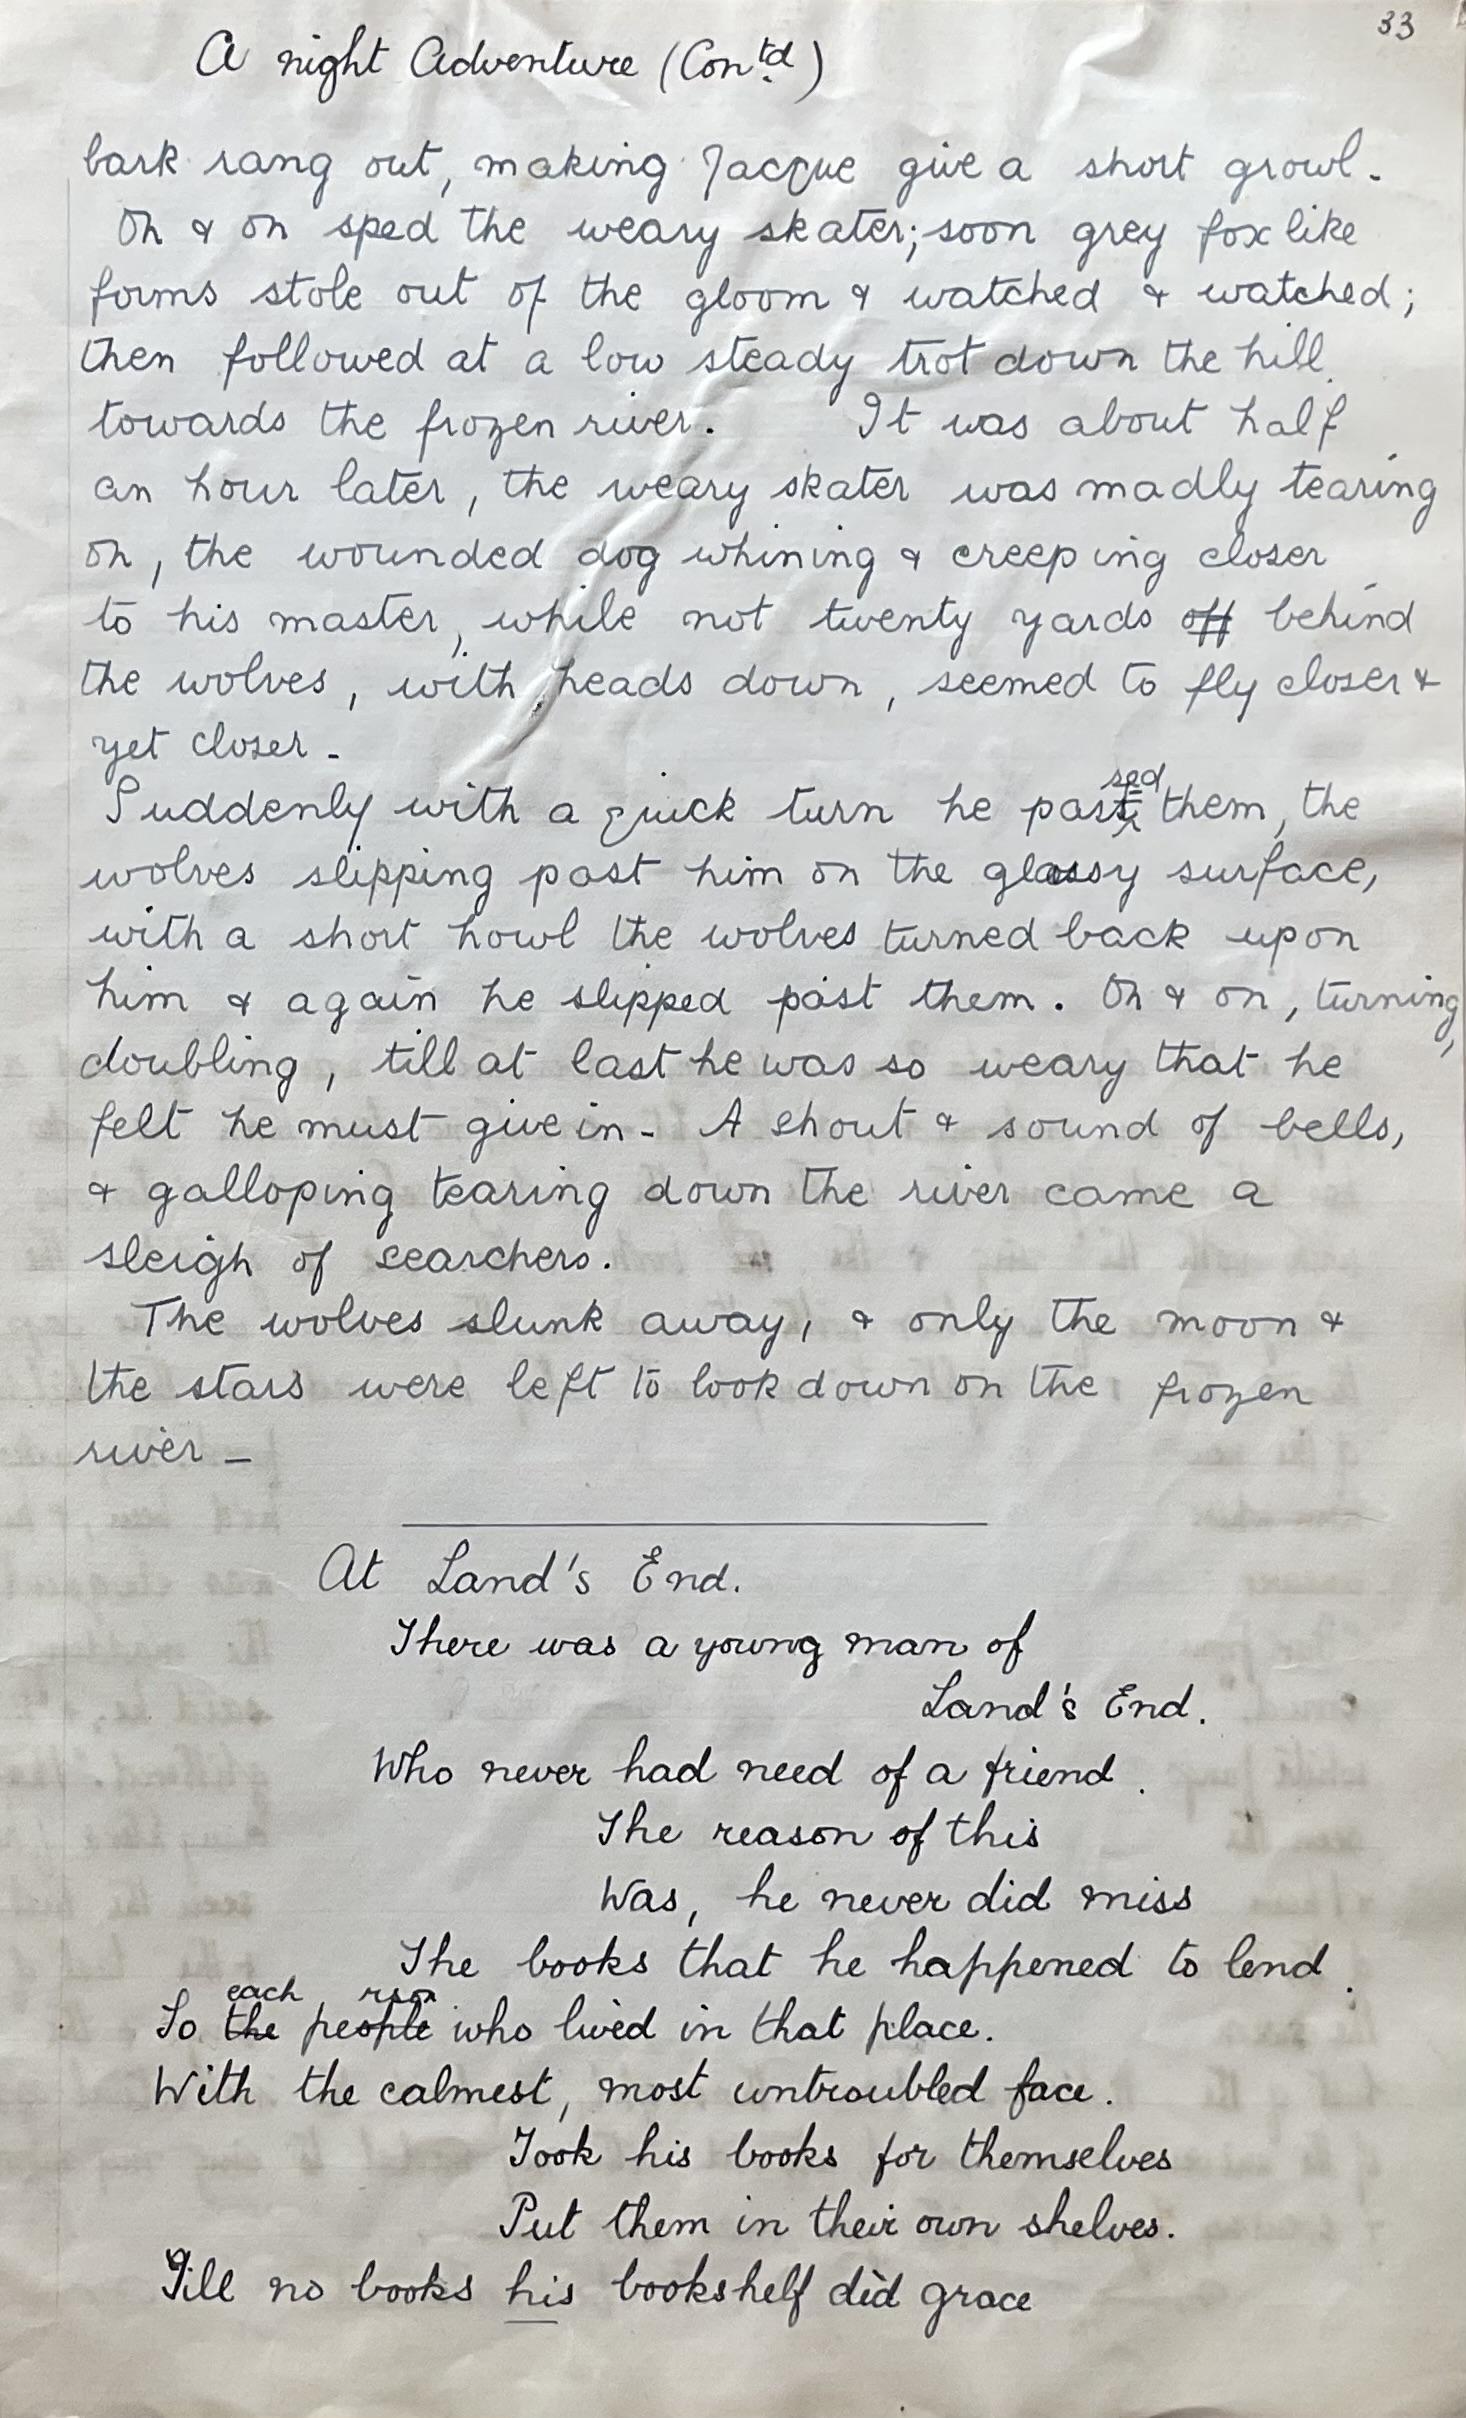 33
A night Adventure (Contd)
bark rang out, making Jacque give a short growl.
On & on sped the weary skater; soon grey fox like
forms stole out of the gloom & watched & watched;
then followed at a low steady trot down the hill
towards the frozen river. It was about half
an hour later, the weary skater was madly tearing
on, the wounded dog whining & creeping closer
to his master, while not twenty yards off behind
the wolves, with heads down, seemed to fly closer &
yet closer -
Suddenly with a quick turn he passed them, the
wolves slipping past him on the glassy surface,
with a short howl the wolves turned back upon
him & again he slipped past them. On & on, turning,
doubling, till at last he was so weary that he
felt he must give in - A shout & sound of bells,
& galloping tearing down the river came a
sleigh of searchers.
The wolves slunk away, & only the moon &
the stars were left to look down on the frozen
river -
At Land's End.
There was a young man of
Land's End.
Who never had need of a friend.
The reason of this
Was, he never did miss
The books that he happened to lend.
each rson
So the people who lived in that place.
With the calmest, most untroubled face.
Took his books for themselves
Put them in their own shelves.
Till no books his bookshelf did grace